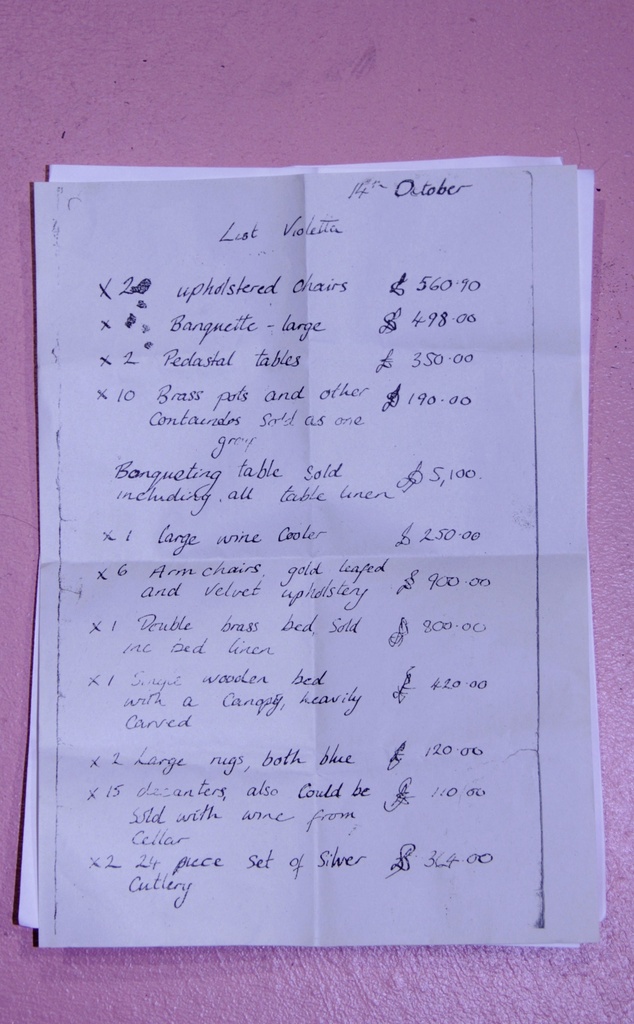 14th October
List Violetta
x 2 upholstered Chairs £ 560.90
x Banquette - large £ 498.00
x 2 Pedastal tables £ 350.00
x 10 Brass pots and other £ 190.00
Sold as one
Banqueting table Sold £ 5,100.
including all table linen
x 1 large wine Cooler £ 250.00
x 6 Arm chairs, gold leafed £ 900.00
and velvet upholstery
x 1 Double brass bed, Sold £ 800.00
inc bed linen
x 1 Single wooden bed £ 420.00
with a Canopy, heavily
Carved
x 2 Large rugs, both blue £ 120.00
x 15 decanters, also Could be £ 110.00
Sold with wine from
Cellar
x 2 24 piece Set of Silver £ 364.00
Cutlery